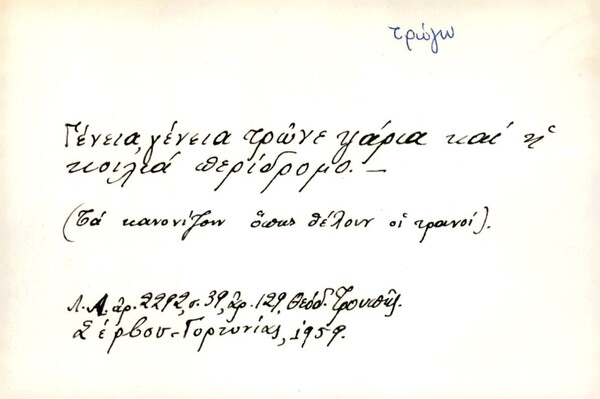 τρώγω
Γένεια, γένεια τρῶνε ψάρια καί ἡ
κοιλιά περίδρομο. —
(Τά κανονίζουν ὅπως θέλουν οἱ τρανοί).
Λ.Α. ἀρ. 2292, σ. 39, ἀρ. 129, Θεόδ. Τρουπῆς.
Σέρβου - Γορτυνίας, 1959.